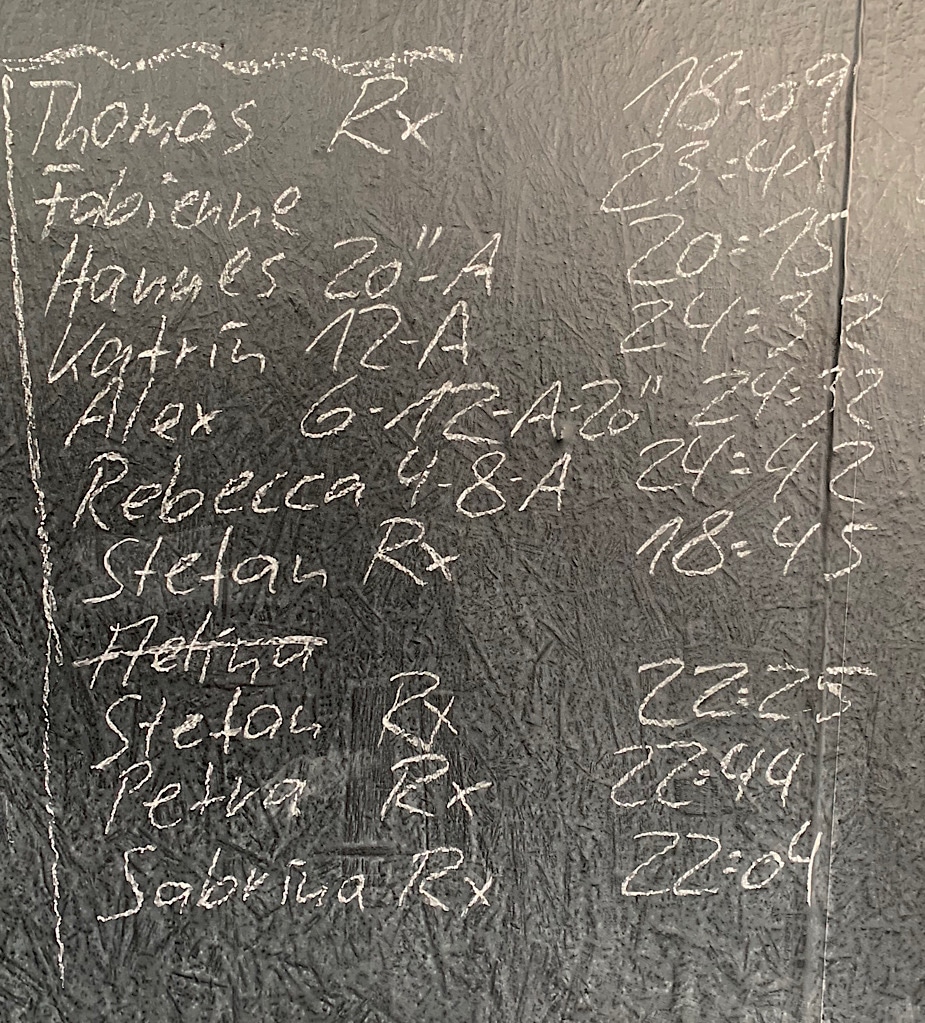 Thomas Rx 18:09
Fabienne 23:41
Hannes 20"-A 20:15
Katrin 12-A 24:32
Alex 6-12-A-20" 24:32
Rebecca 4-8-A 24:42
Stefan Rx 18:45
Stefan Rx 22:25
Petra Rx 22:44
Sabrina Rx 22:04